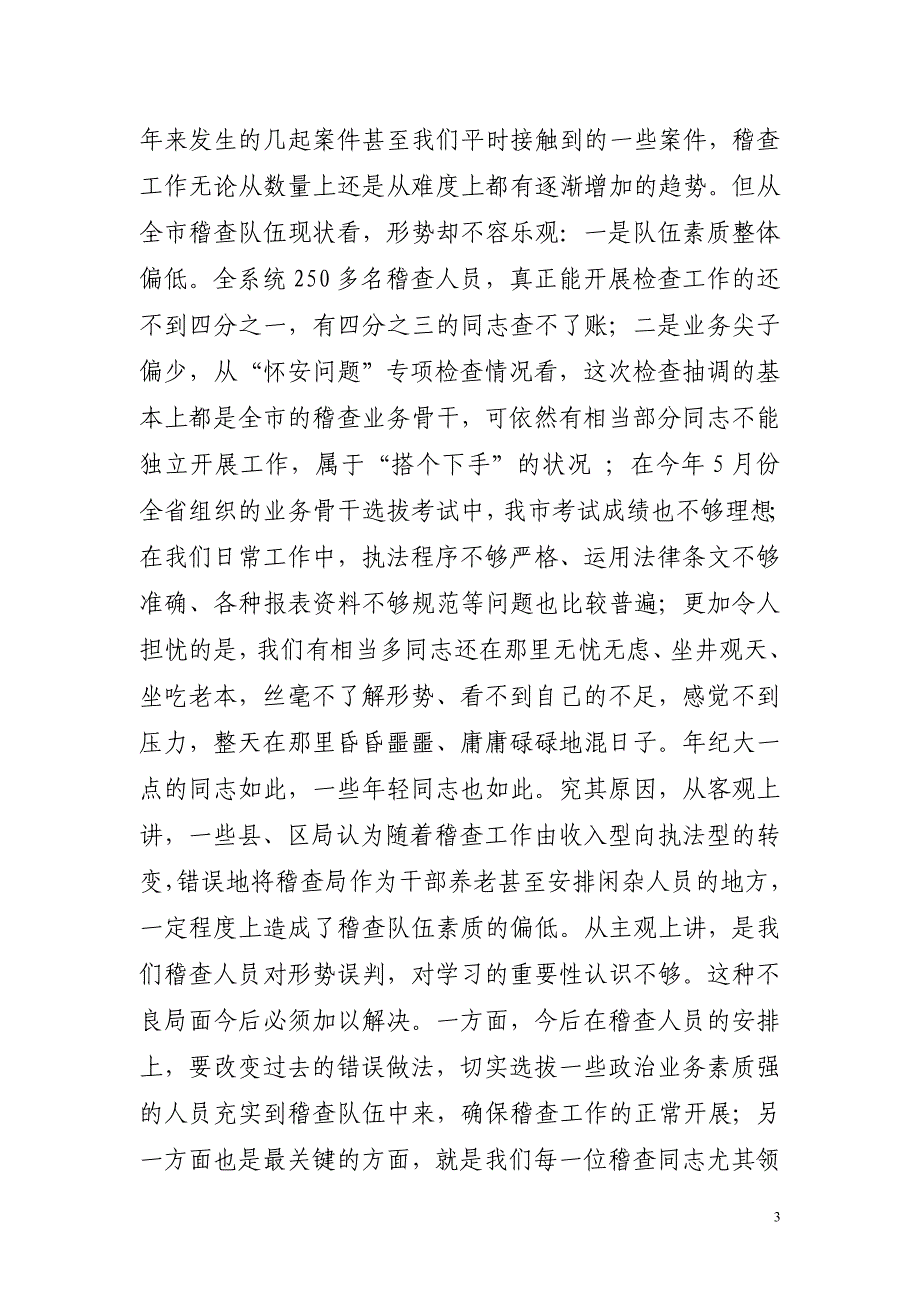 年来发生的几起案件甚至我们平时接触到的一些案件，稽查
工作无论从数量上还是从难度上都有逐渐增加的趋势。但从
全市稽查队伍现状看，形势却不容乐观：一是队伍素质整体
偏低。全系统 250 多名稽查人员，真正能开展检查工作的还
不到四分之一，有四分之三的同志查不了账；二是业务尖子
偏少，从“怀安问题”专项检查情况看，这次检查抽调的基
本上都是全市的稽查业务骨干，可依然有相当部分同志不能
独立开展工作，属于“搭个下手”的状况 ；在今年 5 月份
全省组织的业务骨干选拔考试中，我市考试成绩也不够理想；
在我们日常工作中，执法程序不够严格、运用法律条文不够
准确、各种报表资料不够规范等问题也比较普遍；更加令人
担忧的是，我们有相当多同志还在那里无忧无虑、坐井观天、
坐吃老本，丝毫不了解形势、看不到自己的不足，感觉不到
压力，整天在那里昏昏噩噩、庸庸碌碌地混日子。年纪大一
点的同志如此，一些年轻同志也如此。究其原因，从客观上
讲，一些县、区局认为随着稽查工作由收入型向执法型的转
变，错误地将稽查局作为干部养老甚至安排闲杂人员的地方，
一定程度上造成了稽查队伍素质的偏低。从主观上讲，是我
们稽查人员对形势误判，对学习的重要性认识不够。这种不
良局面今后必须加以解决。一方面，今后在稽查人员的安排
上，要改变过去的错误做法，切实选拔一些政治业务素质强
的人员充实到稽查队伍中来，确保稽查工作的正常开展；另
一方面也是最关键的方面，就是我们每一位稽查同志尤其领
3